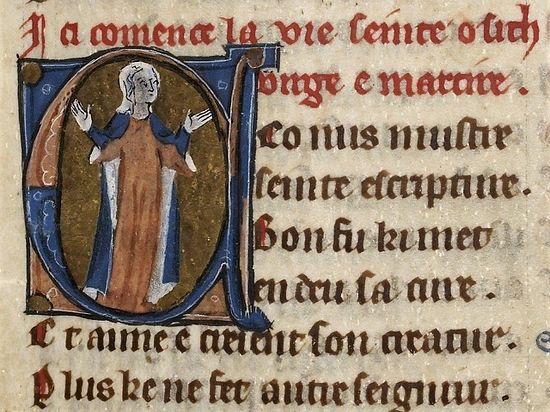 I ci comence la vie seinte osith
virge e martire .
Co nus mustre
seinte escripture .
Bon fu ki met
en deu sa cure .
E t aime e crient son creatur .
Plus ke ne fet autre seignur .